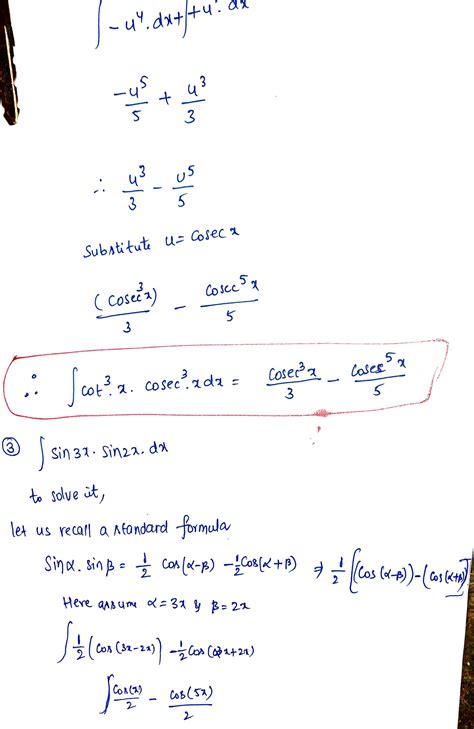 ∫ -u⁴. dx + ∫ + u². dx
-u⁵/5 + u³/3
∴ u³/3 - u⁵/5
Substitute u = Cosec x
(Cosec³x)/3 - Cosec⁵x/5
∴ ∫ cot³.x. cosec³.x dx = Cosec³x/3 - Cosec⁵x/5
③ ∫ Sin3x. Sin2x. dx
to solve it,
let us recall a standard formula
Sinα. sinβ = 1/2 Cos(α-β) - 1/2 Cos(α+β) ⇒ 1/2 [(Cos(α-β)) - (Cos(α+β)]
Here assume α = 3x & β = 2x
∫ 1/2 (Cos(3x-2x)) - 1/2 Cos(3x+2x)
∫ Cos(x)/2 - Cos(5x)/2